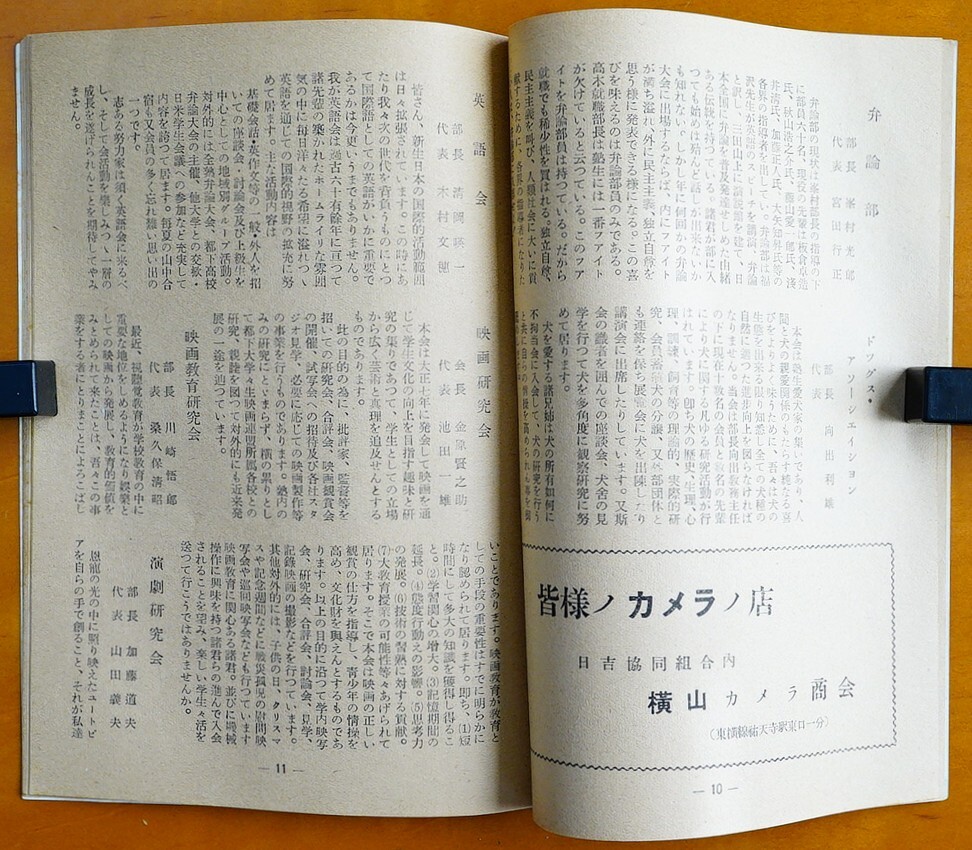 弁論部
部長 峯村光郎
代表 宮田行正
弁論部の現状は峯村部長の指導の下
に部員六十名、現役の先輩は板倉卓造
氏、秋山浩之介氏、藤山愛一郎氏、浅
井清氏、加藤正人氏、大年知昇氏等の
各界の指導者を出している。弁論部は福
沢先生が英語のスピーチを講演、弁論
と訳し、三田山上に演説館を建て、日
本全国に弁論を普及発達せしめた由緒
ある伝統を持つている。諸君が部に入
つても始めは殆んど話しが出来ないか
も知れない。しかし年に何回かの弁論
大会に出場するならば、内にはファイト
が満ち溢れ、外に民主主義、独立自尊を
思う様に発表できる様になる。この喜
びを味えるのは弁論部員のみである。
高木就職部長は塾生には一番ファイト
が欠けていると云つている。このファ
イトを弁論部員は持つている。だから
就職でも稀少性を買はれる。独立自尊、
民主主義を叫び、人類社会に大いに貢
献するために、各界の指導者になりた
ドッグス・
アソーシェイション
部長 向田利雄
代表
本会は塾生愛犬家の集いであり、人
間と犬の親愛関係にもたらす純なる喜
びをより味うために、吾々は犬の
生態を出来る限り知悉し全ての犬種の
自然に適つた進歩向上を図らなければ
なりません。当会は部長向出教務主任
の下に現在十数名の会員と数名の先輩
により犬に関する凡ゆる研究活動が行
はれています。即ち犬の歴史、生理、心
理、訓練、飼育等の理論的、実際的研
究、会員蕃殖犬の分譲、又外部団体と
も連絡を保ち展覧会に犬を出陳したり
講演会に出席したりしています。又斯
会の識者を囲んでの座談会、犬舎の見
学を行つて犬を多角度に観察研究に努
めて居ります。
犬を愛する諸兄姉は犬の所有如何に
不拘当会に入会して、犬の研究を行う
皆様ノカメラノ店
日吉協同組合内
横山カメラ商会
（東横線祐天寺駅東口一分）
— 10 —
英語会
部長 清岡暎一
代表 木村文穂
皆さん、新生日本の国際的活動範囲
は日々拡張されています。この時にあ
たり我々次の世代を背負うものにとつ
て国際語としての英語がいかに重要で
あるかは今更いうまでもありません。
我が英語会は過去六十有餘年に亘つて
諸先輩の築かれたホームライリな雰囲
気の中に毎日洋々たる希望に溢れつゝ
英語を通じての国際的視野の拡充に努
めて居ります。主な活動内容は
基礎会話・英作文等の一般・外人を招
いての座談会・討論会及び上級生を
中心としての地域別グループ活動。
対外的には全塾弁論大会、都下高校
弁論大会の主催、他大学との交歓・
日米学生会議への参加など充実して
内容を誇つて居ます。毎夏の山中合
宿も又会員の多く忘れ難い思い出の
一つです。
志ある努力家は須く英語会に来るべ
し、そして会活動を楽しみつゝ一層の
成長を遂げられんことを期待してやみ
ません。
映画研究会
会長 金原賢之助
代表 池田一雄
本会は大正年に発会して映画を通
じて学生文化の向上を目指す趣味と研
究の集りであつて、学生としての立場
から広く芸術の真理を追及せんとする
ものであります。
此の目的の為に、批評家、監督等を
招いての研究会、合評会、映画観賞会
の開催、試写会への招待及び各社スタ
ジオ見学、必要に応じての映画製作等
の事業を行うものであります。塾内の
みの研究にとゞまらず、横の繋りとし
て都下大学々生映画連盟所属各校との
研究、親睦を図つて対外的にも近来発
展の一途を辿つています。
映画教育研究会
部長 川崎悟郎
代表 桑久保清昭
最近、視聴覚教育が学校教育の中に
重要な地位をしめるようになり娯楽と
しての映画から発展し、教育的価値を
みとめられて来たことは、吾々この事
業をする者にとりまことによろこばし
いことであります。映画教育が教育と
しての手段の重要性はすでに明らかに
なり認められて居ります。即ち、(1)短
時間にして多大の知識を獲得し得るこ
と。(2)学習関心の増大。(3)記憶期間の
延長。(4)態度行動えの影響。(5)思考力
の発展。(6)技術の習熟に対する貢献。
(7)大教育授業の可能性等々あげられて
居ります。そこで本会は映画の正しい
観賞の仕方を指導し、青少年の情操を
高め、文化財を與えんとするものであ
ります。以上の目的に沿つて学内映写
会、研究会、合評会、討論会、見学、
記録映画の撮影などを行つています。
其他対外的には、子供の日、クリスマ
スや記念週間などに戦災孤児の慰問映
写会や巡回映写会なども行つています
映画教育に関心ある諸君。並びに機械
操作に興味を持つ諸君らの進んで入会
されることを望み、楽しい学生々活を
送つて行こうではありませんか。
演劇研究会
部長 加藤道夫
代表 山田義夫
恩寵の光の中に照り映えたユートピ
アを自らの手で創ること、それが私達
— 11 —